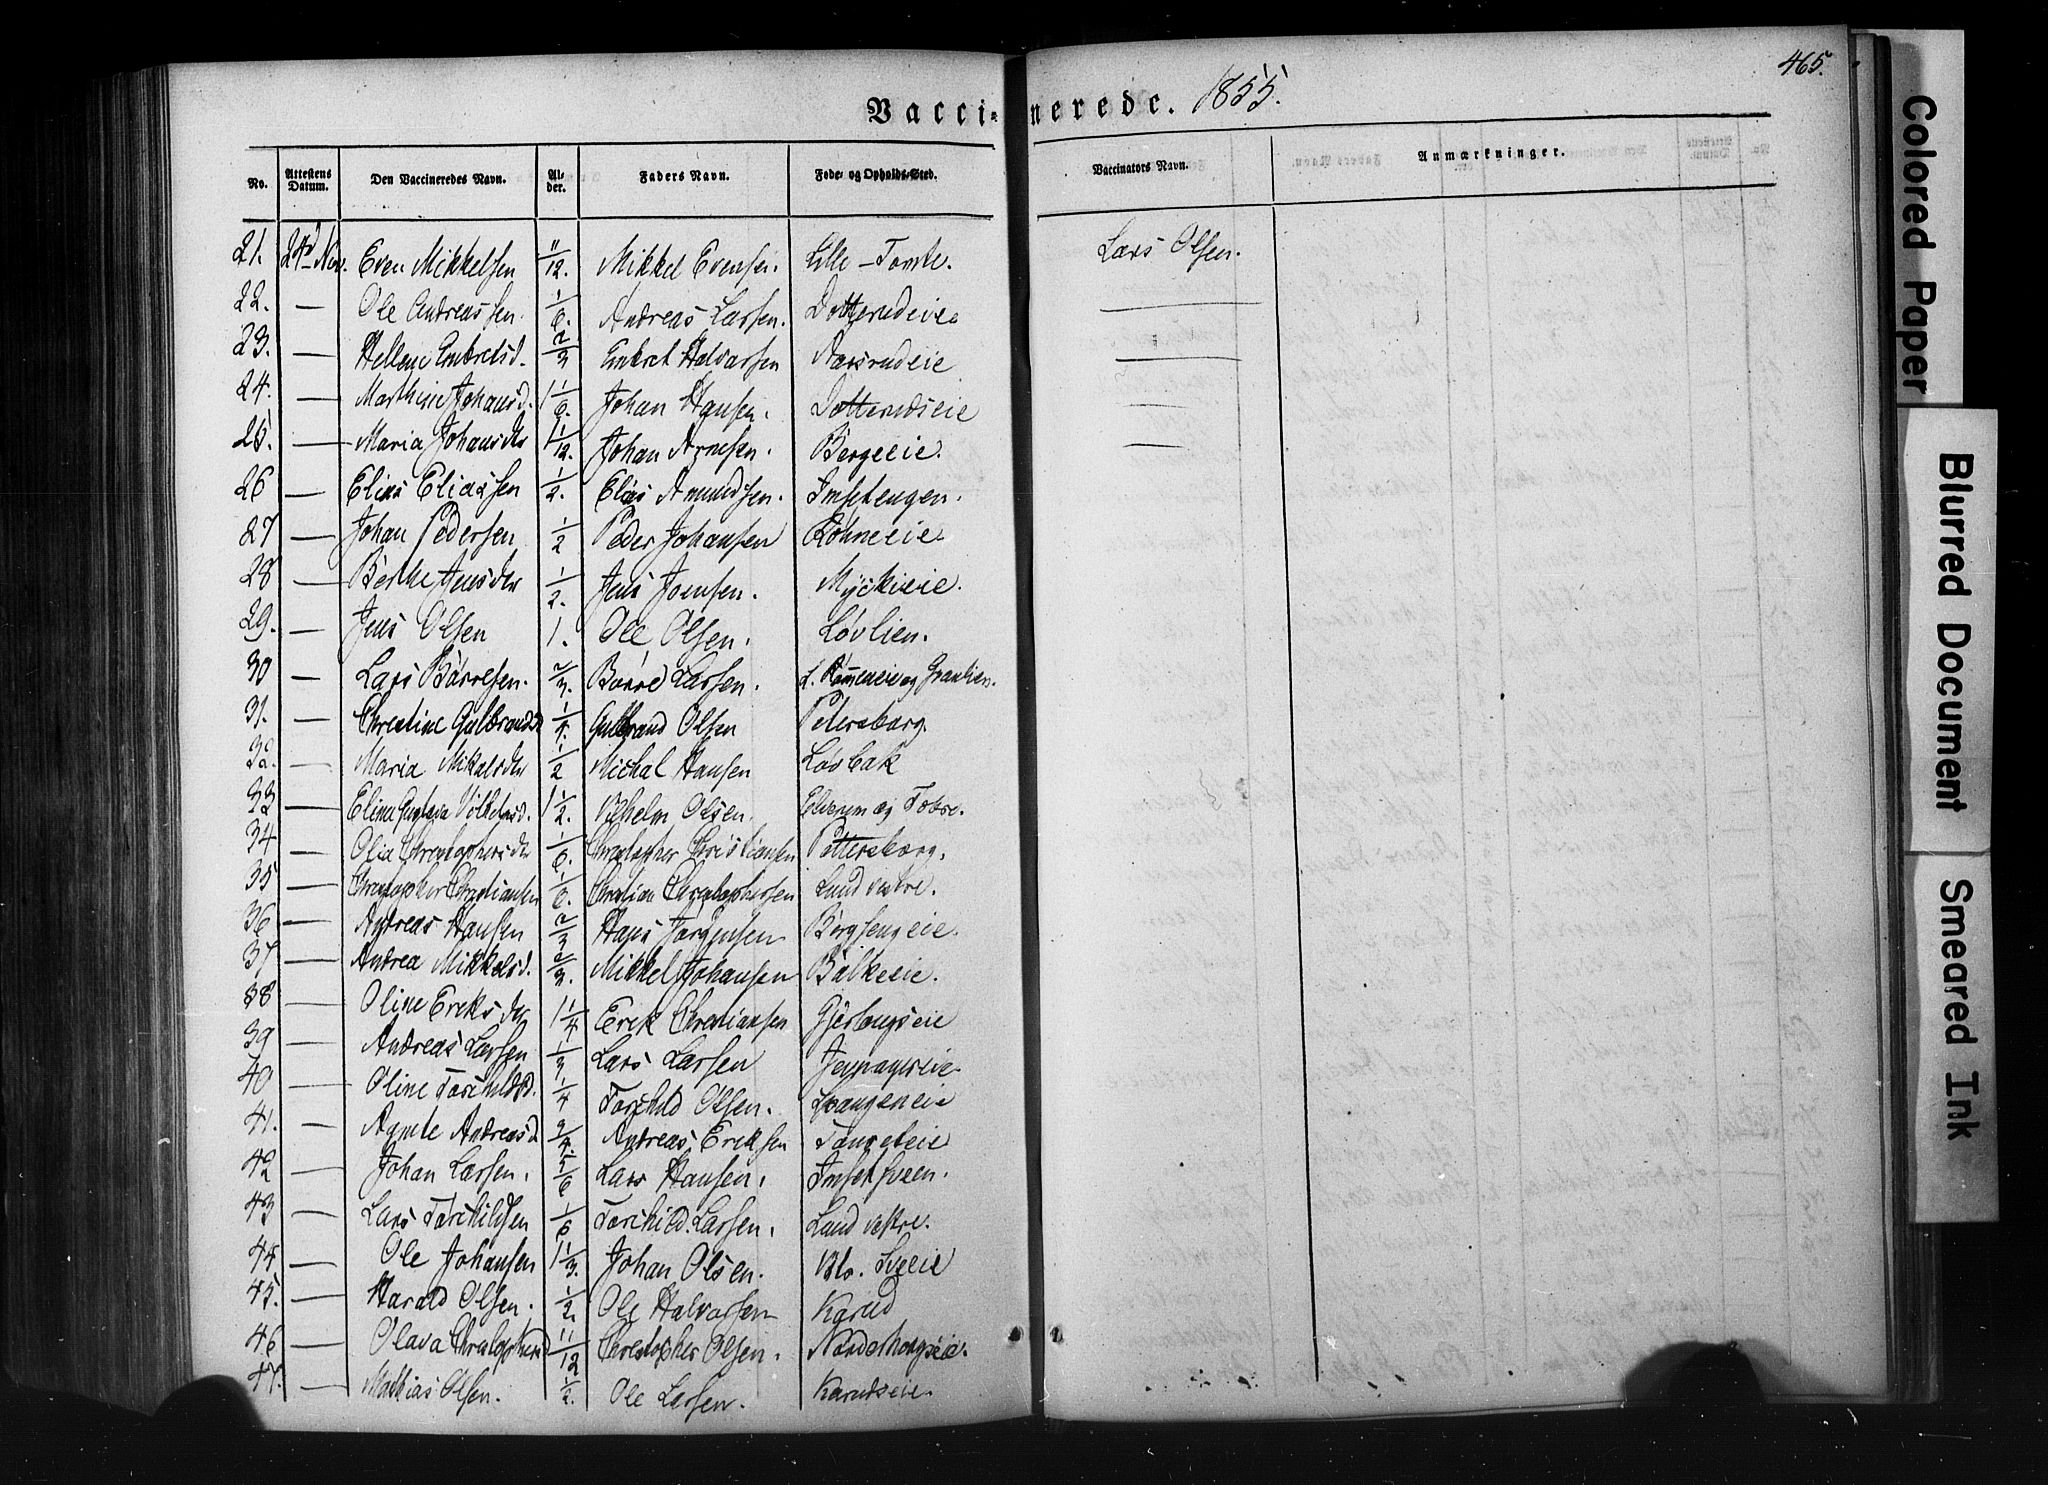 465.
Vaccinerede. 1855.
No. Attestens Datum. Den Vaccineredes Navn. Alder. Faders Navn. Føde- og Opholds-Sted. Vaccinators Navn. Anmærkninger.
21. 24d Nov. Even Mikkelsen 11/12. Mikkel Evensen. Lille-Tomte. Lars Olsen.
22. — Ole Andreassen. 1/6. Andreas Larsen. —
23. — Hellene Embretsd. 2/3 Embret Halvorsen Aasrudeie —
24. — Marthine Johansd. 1 1/6. Johan Hansen. Dotterudseie —
25. — Maria Johansdtr 1 1/12. Johan Arnesen. Bergeeie. —
26 — Elias Eliassen 1/2. Elias Amundsen. Imsetengen.
27 — Johan Pedersen 1/2 Peder Johansen
28 — Berthe Jensdtr 1/2. Jens Jensen. Myckieie.
29. — Jens Olsen 1. Ole Olsen. Løvlien.
30 — Lars Börresen. 2/3. Börre Larsen.
31. — Christine Gulbrandsd 1/4. Gulbrand Olsen Petersborg.
32. — Maria Mikalsdtr 1/2 Michal Hansen Løvbak
33 — 1 1/2. Vilhelm Olsen.
34 — Olia Christophersdtr 1/6. Christopher Christiansen Pettersborg.
35 — Christopher Christiansen 1/6. Christian Christophersen Lund vestre.
36 — Andreas Hansen 2/3 Hans Jörgensen Bergsengeie.
37 — Andrea Mikkelsd. 2/3. Mikkel Johansen Balkeeie.
38 — Oline Eriksdtr 1 1/4 Erik Christiansen
39 — Andreas Larsen 1/3 Lars Larsen
40 — Oline Torkildsd. 1/4 Torkild Olsen.
41. — Agnete Andreasd Andreas Eriksen
42 — Johan Larsen. 5/6 Lars Hansen.
43 — Lars Torkildsen 1/6 Torkild Larsen. Lund vestre.
44 — Ole Johansen 1 1/3. Johan Olsen.
45. — Harald Olsen. 1/2. Ole Halvorsen Karud
46 — Olava Christophersd 11/12 Christopher Olsen.
47. — Mathias Olsen. 1/2. Ole Larsen. Karudseie.
Colored Paper
Blurred Document
Smeared Ink